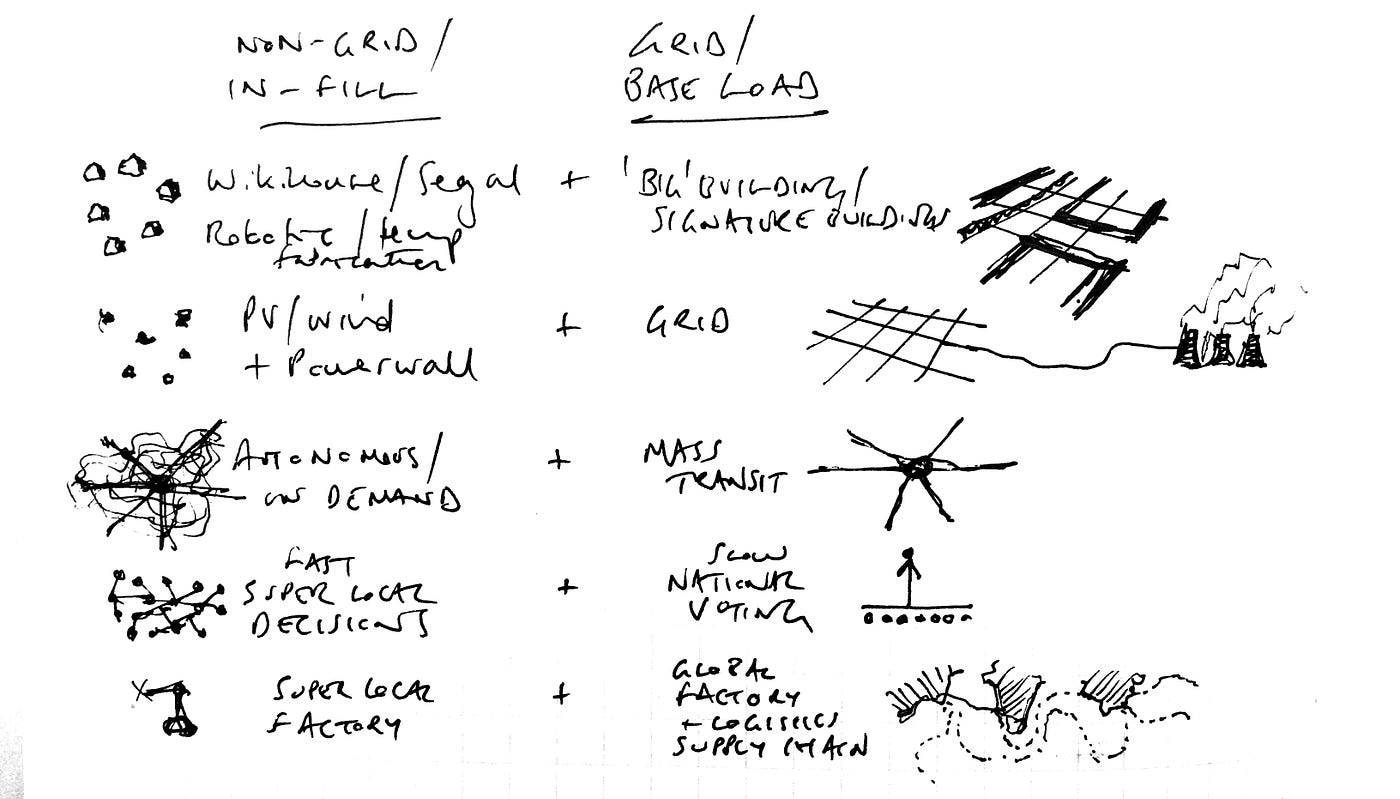 NON-GRID/
IN-FILL
GRID/
BASE LOAD
Wikihouse/Segal + 'BIG' BUILDING/
SIGNATURE BUILDINGS
Robotic/temp
fabrication
PV/wind + GRID
+ Powerwall
AUTONOMOUS/
ON DEMAND
+
MASS
TRANSIT
FAST
SUPER LOCAL
DECISIONS
+
SLOW
NATIONAL
VOTING
SUPER LOCAL
FACTORY
+
GLOBAL
FACTORY
+ LOGISTICS
SUPPLY CHAIN